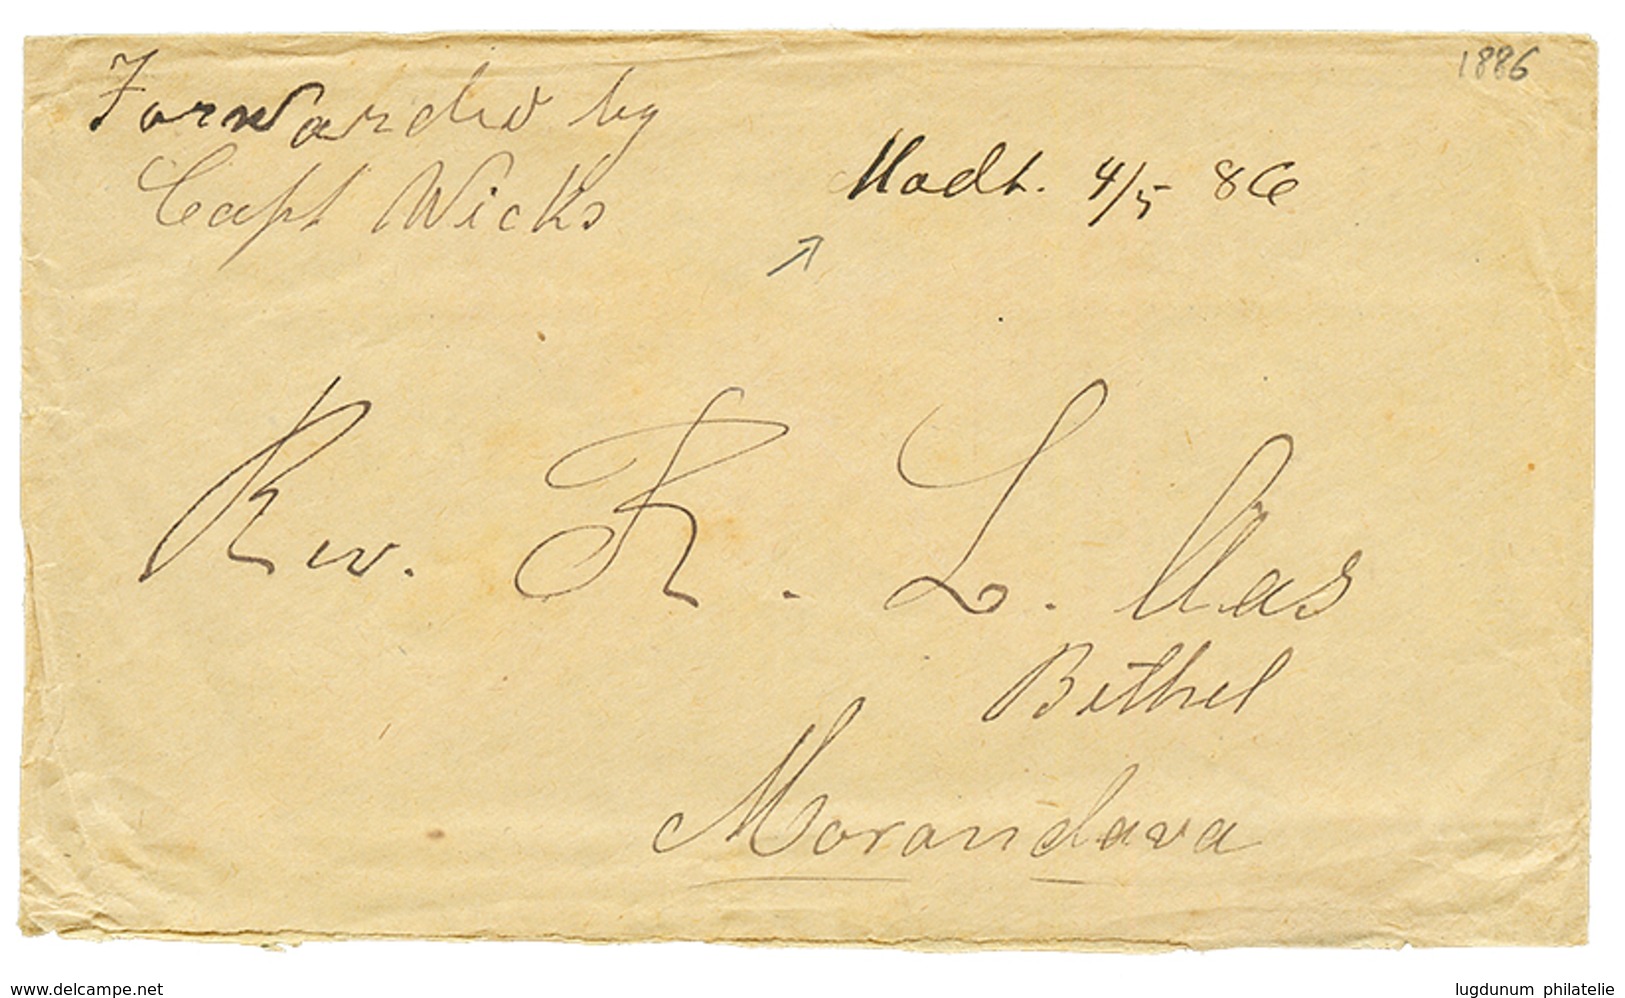 1886
Forwarded by
Capt Wicks
Modt. 4/5 86
Rev. K. L. Aas
Bethel
Morandava
www.delcampe.net
lugdunum philatelie